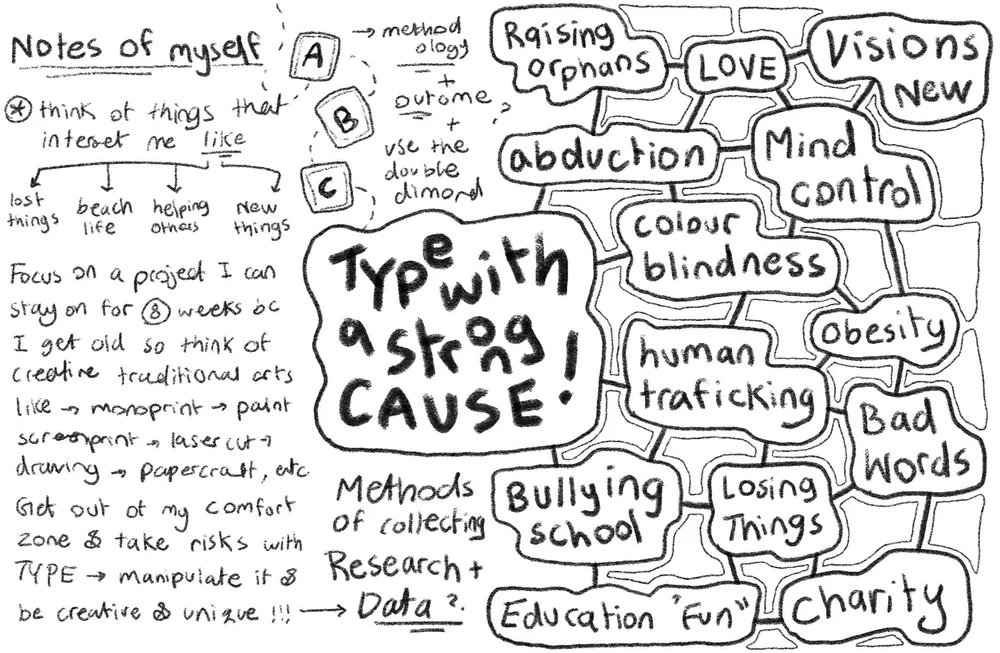 Notes of myself
⊛ think of things that
interest me like
lost
things
beach
life
helping
others
New
things
Focus on a project I can
stay on for ⑧ weeks bc
I get old so think of
creative traditional arts
like → monoprint → paint
screenprint → laser cut →
drawing → papercraft, etc
Get out of my comfort
zone & take risks with
TYPE → manipulate it &
be creative & unique !!! →
A
B
C
→ method
ology
+
outome
+ ?
use the
double
dimond
Type with
a strong
CAUSE!
Methods
of collecting
Research +
Data ?.
Raising
orphans
LOVE
Visions
New
abduction
Mind
control
colour
blindness
obesity
human
traficking
Bad
Words
Bullying
school
Losing
Things
Education "Fun"
Charity